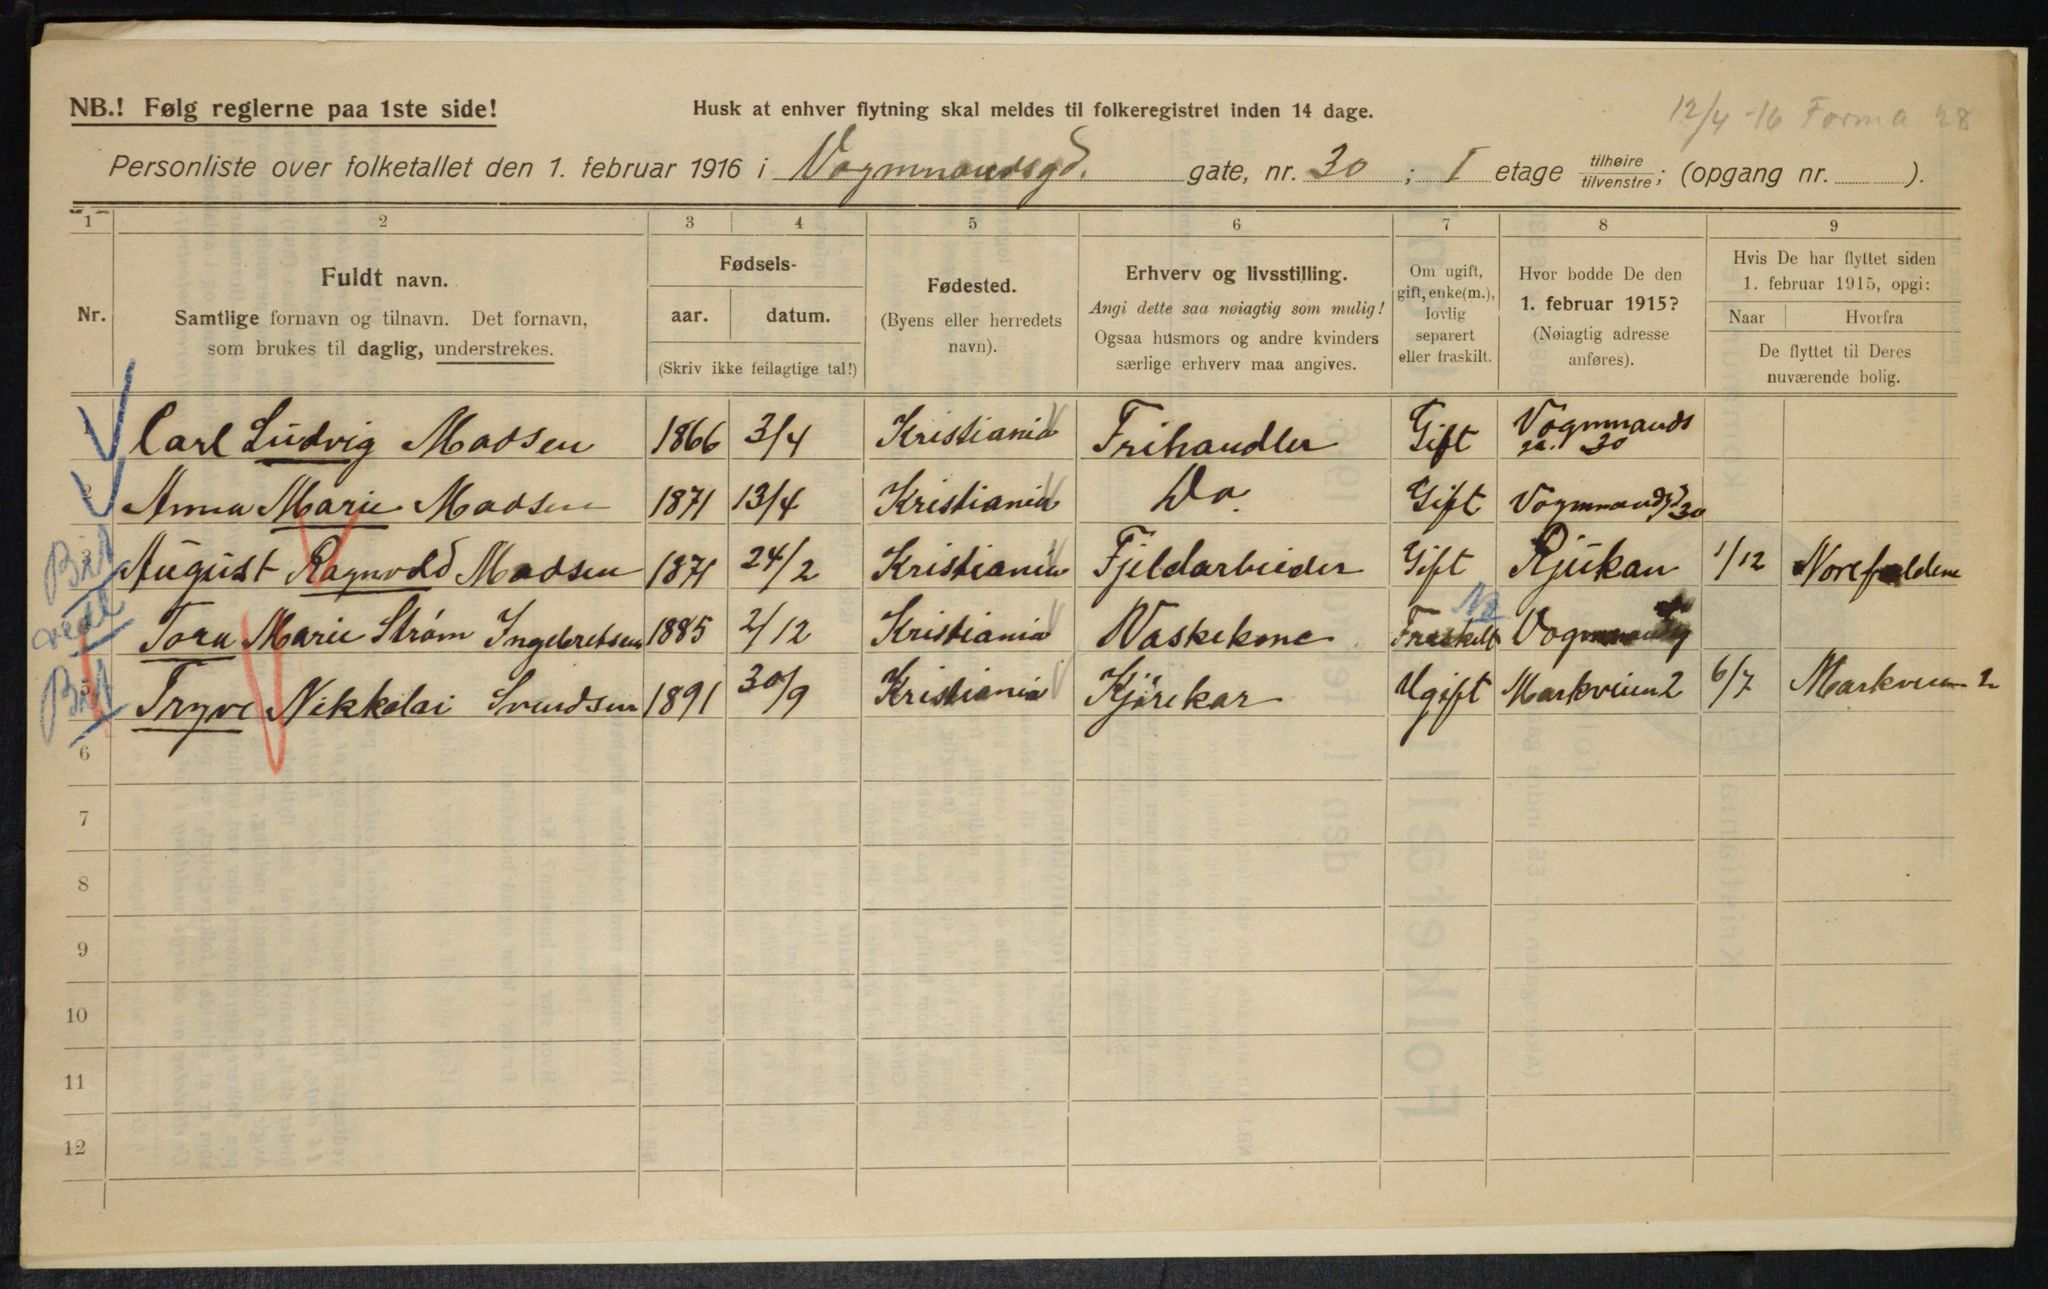 NB.! Følg reglerne paa 1ste side!
Husk at enhver flytning skal meldes til folkeregistret inden 14 dage.
12/4 -16 Forma 28
Personliste over folketallet den 1. februar 1916 i Vognmandsgd. gate, nr. 30 ; I etage tilhøire/tilvenstre; (opgang nr. ).
1 2 3 4 5 6 7 8 9
Nr.
Fuldt navn.
Samtlige fornavn og tilnavn. Det fornavn,
som brukes til daglig, understrekes.
Fødsels-
aar. datum.
(Skriv ikke feilagtige tal!)
Fødested.
(Byens eller herredets
navn).
Erhverv og livsstilling.
Angi dette saa nøiagtig som mulig!
Ogsaa husmors og andre kvinders
særlige erhverv maa angives.
Om ugift,
gift, enke(m.),
lovlig
separert
eller fraskilt.
Hvor bodde De den
1. februar 1915?
(Nøiagtig adresse
anføres).
Hvis De har flyttet siden
1. februar 1915, opgi:
Naar Hvorfra
De flyttet til Deres
nuværende bolig.
1 Carl Ludvig Madsen 1866 3/4 Kristiania Frihandler Gift Vognmands ga. 30
2 Anna Marie Madsen 1871 13/4 Kristiania Do. Gift Vognmandsg 30
3 August Ragnvold Madsen 1871 24/2 Kristiania Fjeldarbeider Gift Rjukan 1/12
Tora Marie Strøm Ingebretsen 1885 2/12 Kristiania Vaskekone Fraskilt Vognmandsg
5 Trygve Nikkolai Svendsen 1891 30/9 Kristiania Kjørekar Ugift Markveien 2 6/7 Markveien 2
6
7
8
9
10
11
12